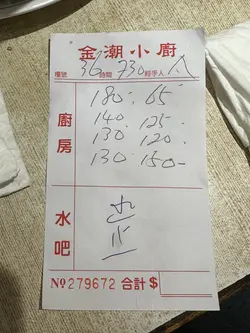 金潮小廚
檯號 36 時間 730 經手人
180- 65-
140- 125-
廚房
130 120-
130 150-
水吧
№279672 合計$